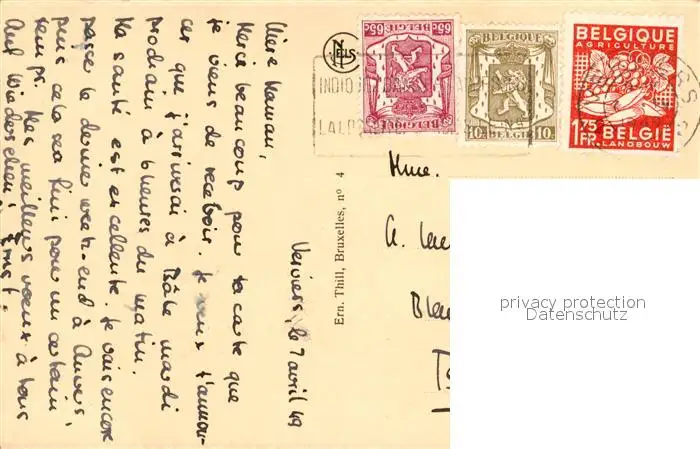 Verviers, le 7 avril 49
Chère Maman,
Merci beaucoup pour ta carte que
je viens de recevoir. Je veux t'annon-
cer que j'arriverai à Bâle mardi
prochain à 6 heures du matin.
Ma santé est excellente. Je vais encore
passer le dernier week-end à Anvers,
puis cela sera fini pour un certain
temps. Mes meilleurs vœux à tous
Auf Wiedersehen! Ernst.
Ern. Thill, Bruxelles, n° 4
NELS
65c BELGIE 65c
BELGIQUE
BELGIQUE
10c BELGIE 10c
BELGIQUE
AGRICULTURE
1.75 BELGIË
FR. LANDBOUW
Mme.
A.
privacy protection
Datenschutz